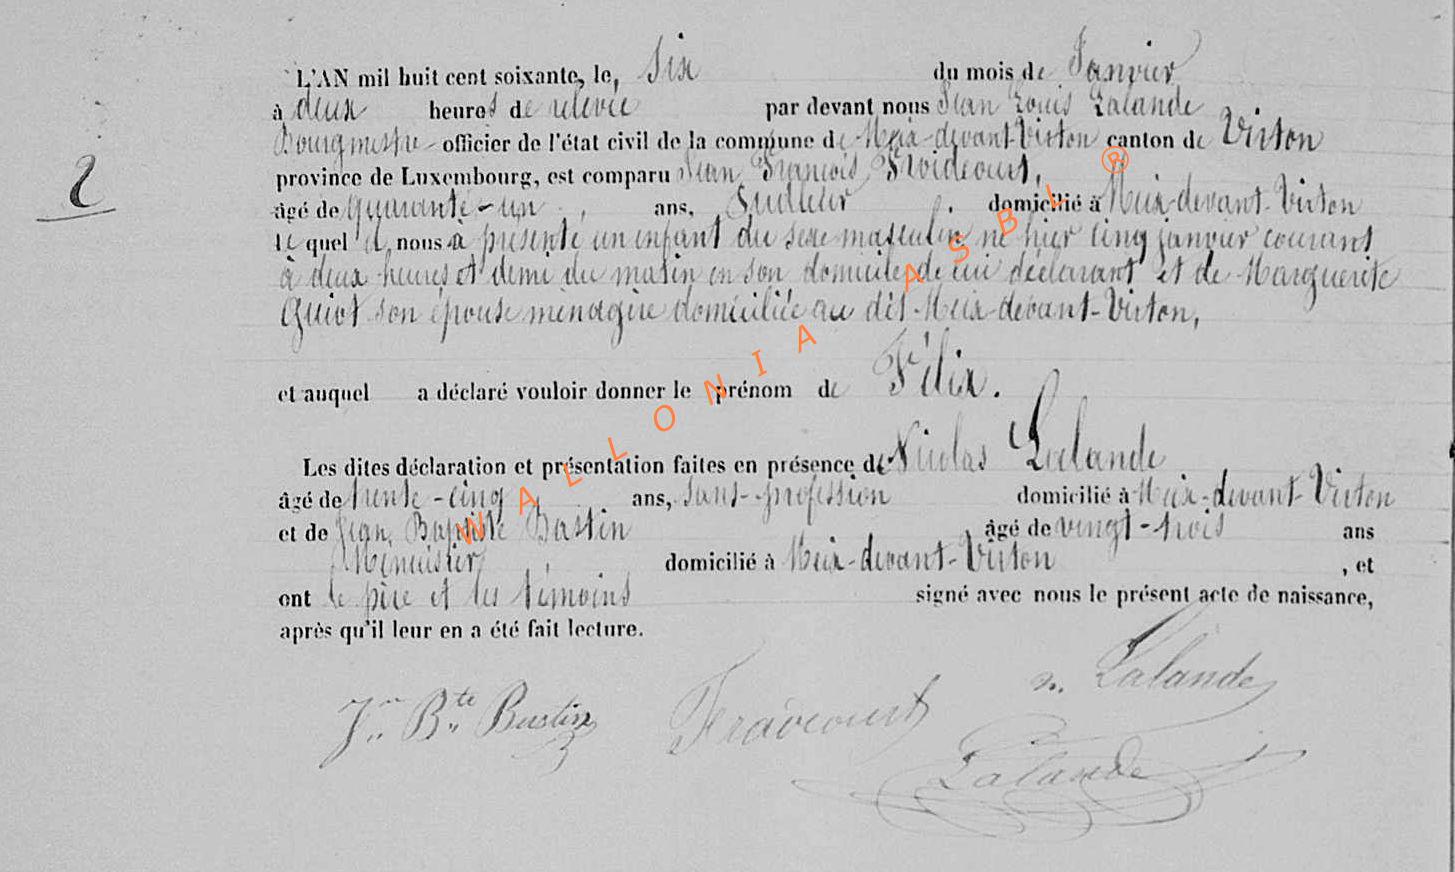 L'AN mil huit cent soixante, le, Six du mois de Janvier
à deux heures de relevée par devant nous Jean Louis Lalande
Bourgmestre officier de l'état civil de la commune de Meix-devant-Virton canton de Virton
province de Luxembourg, est comparu Jean François Froidcourt,
âgé de quarante-un ans, domicilié à Meix-devant-Virton
2
le quel il nous a présenté un enfant du sexe masculin né hier cinq janvier courant
à deux heures et demi du matin en son domicile de lui déclarant et de Marguerite
Guiot son épouse ménagère domiciliée au dit Meix-devant-Virton,
et auquel a déclaré vouloir donner le prénom de Félix.
Les dites déclaration et présentation faites en présence de Nicolas Lalande
âgé de trente-cinq ans, sans-profession domicilié à Meix-devant-Virton
et de Jean Baptiste Bastin âgé de vingt-trois ans
Menuisier domicilié à Meix-devant-Virton , et
ont le père et les témoins signé avec nous le présent acte de naissance,
après qu'il leur en a été fait lecture.
n. Lalande
Jn Bte Bastin
Lalande
WALLONIA ASBL ®